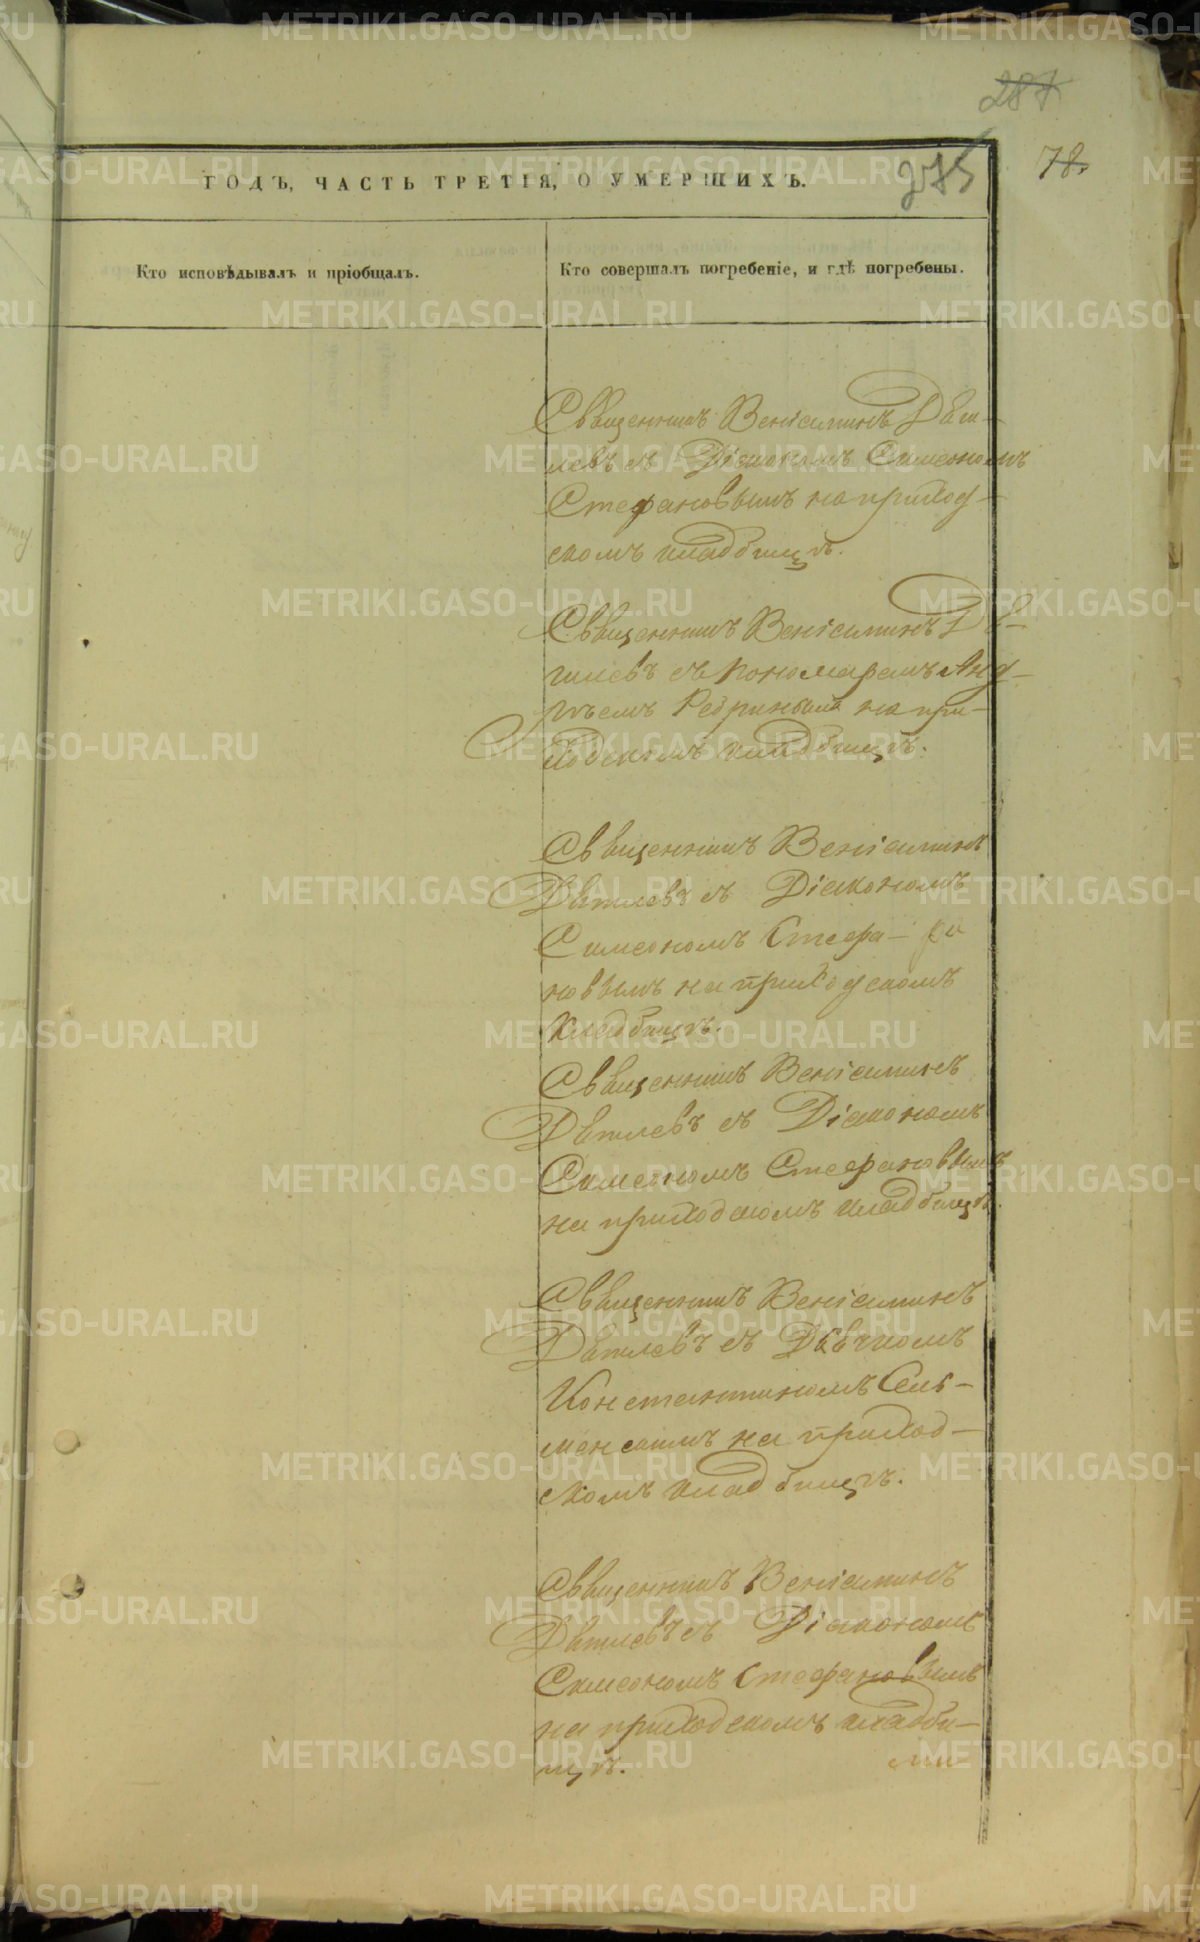 287
275
78.
ГОДЪ, ЧАСТЬ ТРЕТІЯ, О УМЕРШИХЪ.
Кто исповѣдывалъ и пріобщалъ.
Кто совершалъ погребеніе, и гдѣ погребены.
Священникъ Веніаминъ Дѣт-
левъ съ Діакономъ Симеономъ
Стефановымъ на приход-
скомъ кладбищѣ.
Священникъ Веніаминъ Дѣ-
тлевъ съ Пономаремъ Анд-
рѣемъ на при-
ходскомъ кладбищѣ.
Священникъ Веніаминъ
Дѣтлевъ съ Діакономъ
Симеономъ Стефа-
новымъ на приходскомъ
кладбищѣ.
Священникъ Веніаминъ
Дѣтлевъ съ Діакономъ
Симеономъ Стефановымъ
на приходскомъ кладбищѣ.
Священникъ Веніаминъ
Дѣтлевъ съ Дьячкомъ
Константиномъ Сель-
менскимъ на приход-
скомъ кладбищѣ.
Священникъ Веніаминъ
Дѣтлевъ съ Діакономъ
Симеономъ Стефановымъ
на приходскомъ кладби-
щѣ.
METRIKI.GASO-URAL.RU